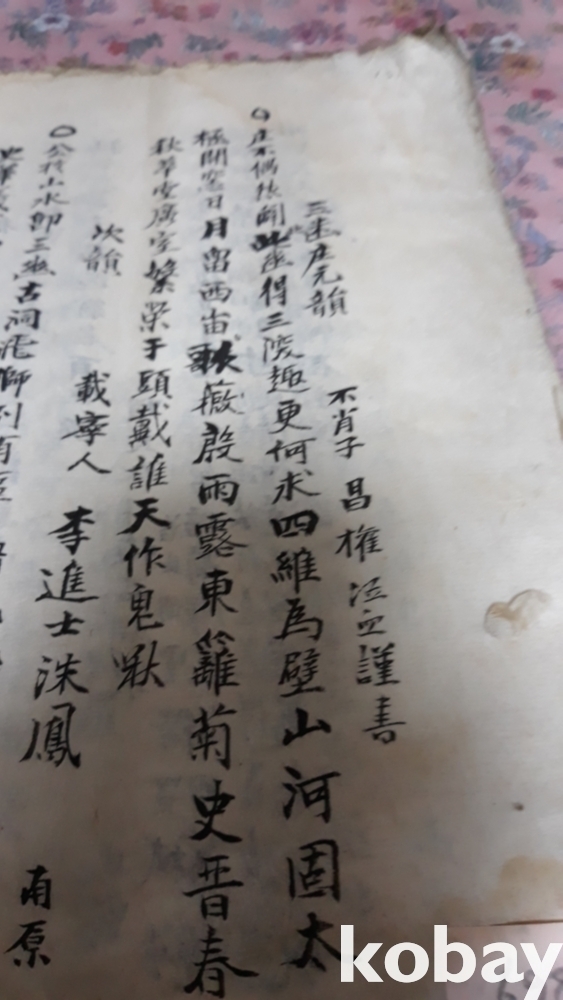 三幽庄元韻
不肖子 昌權 泣血謹書
庄不偶然閒此幽得三陵趣更何求四維為壁山河固太
極開窓日月留西宙歌薇殷雨露東籬菊史晋春
秋草堂廣室繁榮于頭戴誰天作鬼啾
次韻 載寧人 李進士洙鳳
公於山水即三幽古洞
南原
kobay